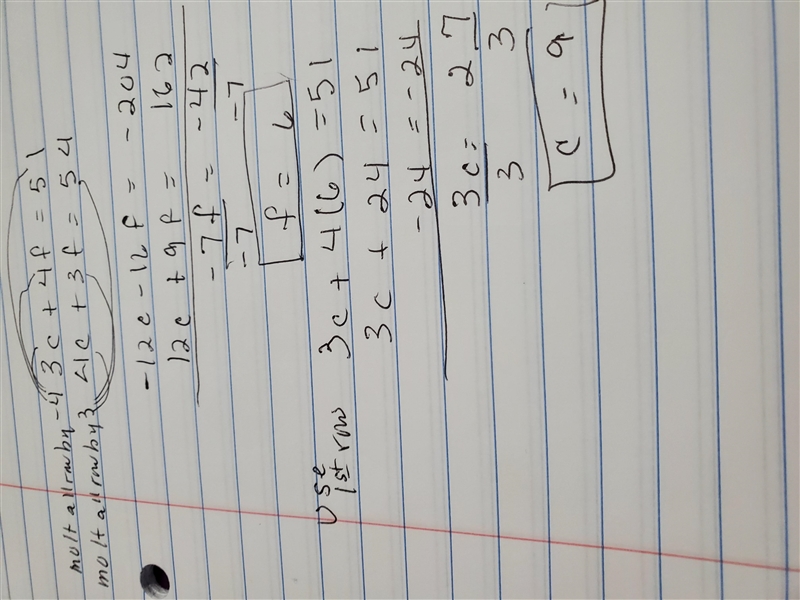 mult all row by -4 3c + 4f = 51
mult all row by 3 4c + 3f = 54
-12c -12f = -204
12c + 9f = 162
-7f = -42
-7 -7
f = 6
use 1st row 3c + 4(6) = 51
3c + 24 = 51
-24 = -24
3c = 27
3 3
c = 9